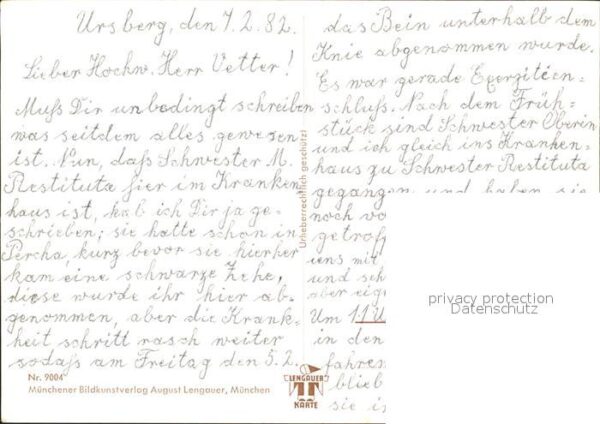 Ursberg, den 7.2.82.
Lieber Hochw. Herr Vetter!
Muß Dir unbedingt schreiben
was seitdem alles gewesen
ist. Nun, daß Schwester M.
Restituta hier im Kranken
haus ist, hab ich Dir ja ge-
schrieben; sie hatte schon in
Percha, kurz bevor sie hierher
kam eine schwarze Zehe,
diese wurde ihr hier ab-
genommen, aber die Krank-
heit schritt rasch weiter
sodaß am Freitag den 5.2.
das Bein unterhalb dem
Knie abgenommen wurde.
Es war gerade Exerzitien=
schluß. Nach dem Früh=
stück sind Schwester Oberin
und ich gleich ins Kranken=
haus zu Schwester Restituta
gegangen und haben sie
noch vo
getroff
uns mit
und seh
aber eige
Um 11 U
in den
fahren
blieb
sie i
Urheberrechtlich geschützt!
Nr. 9004
Münchener Bildkunstverlag August Lengauer, München
LENGAUER
KARTE
privacy protection
Datenschutz